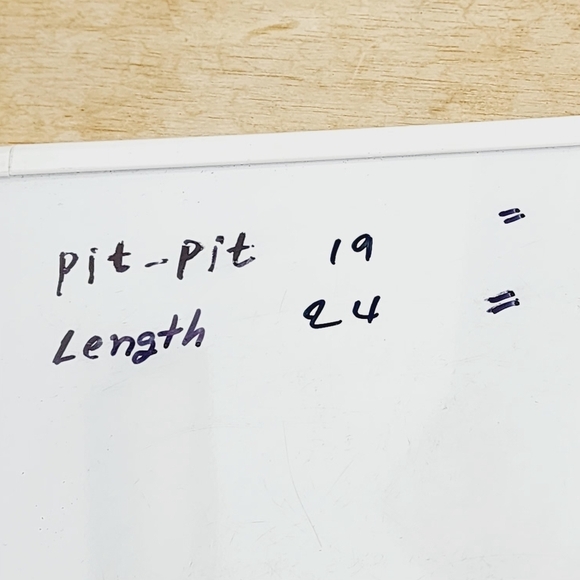 Pit-Pit 19 "
Length 24 "